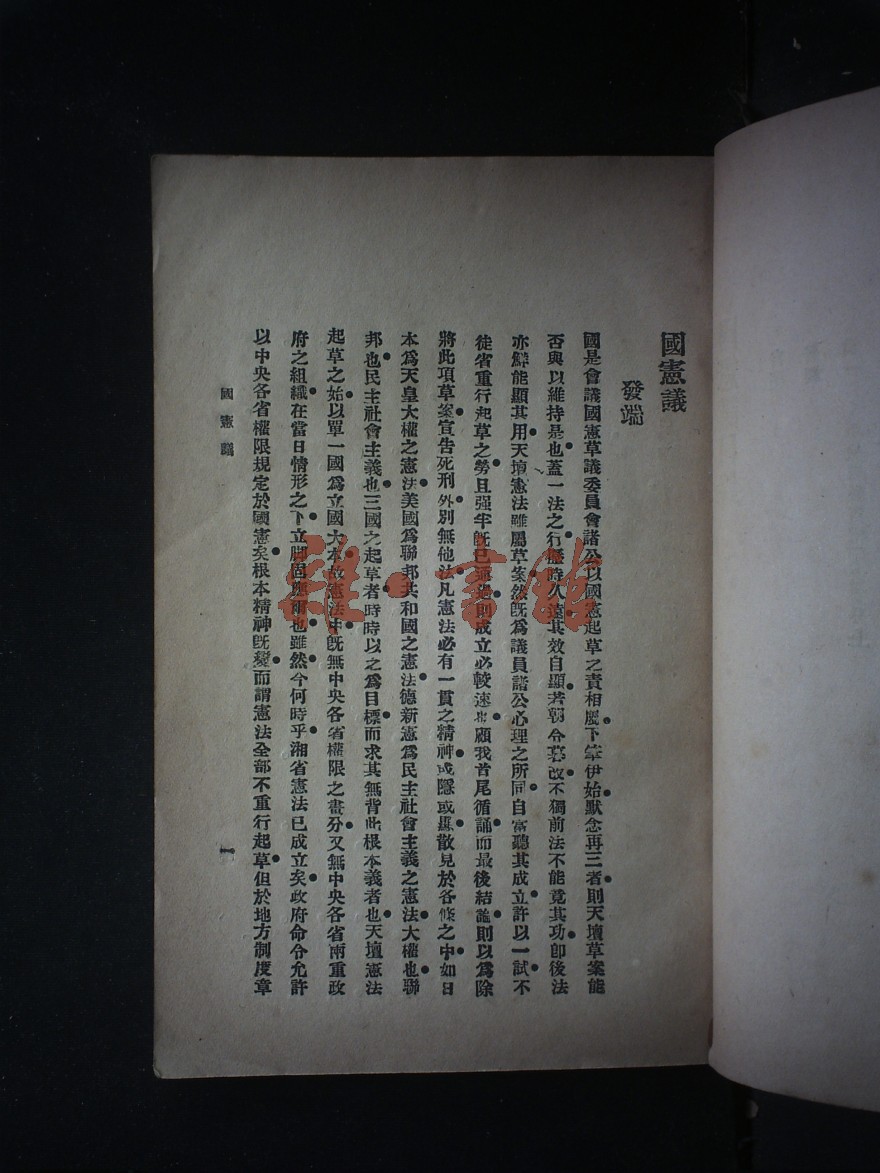 國憲議
發端
國是會議國憲草議委員會諸公以國憲起草之責相屬下筆伊始默念再三者則天壇草案能
否與以維持是也蓋一法之行歷時久遠其效自顯若朝令暮改不獨前法不能竟其功卽後法
亦鮮能顯其用天壇憲法雖屬草案然旣爲議員諸公心理之所同自當聽其成立許以一試不
徒省重行起草之勞且强半旣已通過則成立必較速也顧我首尾循誦而最後結論則以爲除
將此項草案宣告死刑外別無他法凡憲法必有一貫之精神或隱或顯散見於各條之中如日
本爲天皇大權之憲法美國爲聯邦共和國之憲法德新憲爲民主社會主義之憲法大權也聯
邦也民主社會主義也三國之起草者時時以之爲目標而求其無背此根本義者也天壇憲法
起草之始以單一國爲立國大本故憲法中旣無中央各省權限之畫分又無中央各省兩重政
府之組織在當日情形之下立脚固應爾也雖然今何時乎湘省憲法已成立矣政府命令允許
以中央各省權限規定於國憲矣根本精神旣變而謂憲法全部不重行起草但於地方制度章
國憲議
一
雜·書館